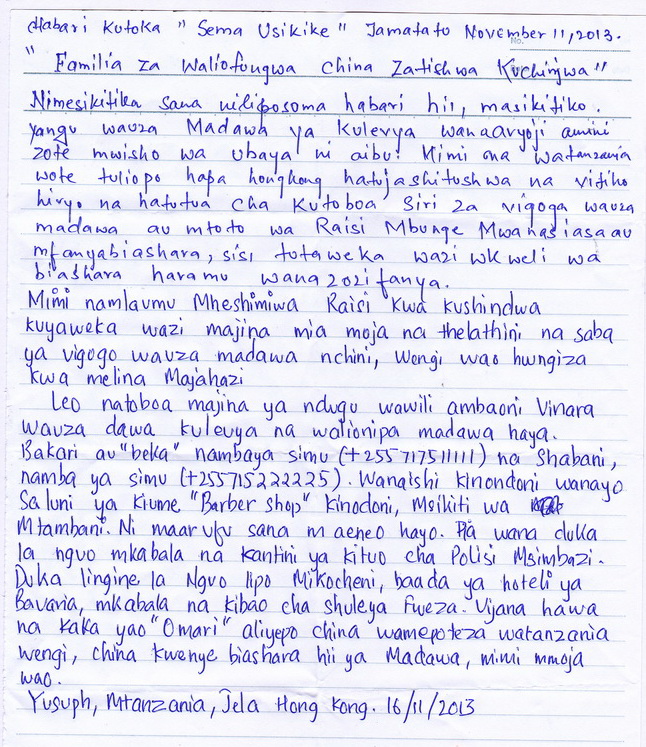 Habari Kutoka "Sema Usikike" Jamatatu November 11, 2013.
No.
"Familia za Waliofungwa China Zatishwa Kuchinjwa"
Nimesikitika sana niliposoma habari hii, masikitiko.
yangu wauza Madawa ya Kulevya wanaavyoji amini
zote mwisho wa ubaya ni aibu! Mimi na watanzania
wote tuliopo hapa hongkong hatujashitushwa na vitiho
hivyo na hatutua cha Kutoboa Siri za vigoga wauza
madawa au mtoto wa Raisi Mbunge Mwanasiasa au
mfanyabiashara, sisi tutaweka wazi wkweli wa
biashara haramu wana20zifanya.
Mimi namlaumu Mheshimiwa Raisi kwa kushindwa
kuyaweka wazi majina mia moja na thelathini na saba
ya vigogo wauza madawa nchini, wengi wao huingiza
kwa melina Majahazi
Leo natoboa majina ya ndugu wawili ambaoni Vinara
wauza dawa kulevya na walionipa madawa haya.
Bakari au "beka" nambaya simu (+255717511111) na Shabani,
namba ya simu (+255715222225). Wanaishi kinondoni wanayo
Saluni ya kiume "Barber shop" kinodoni, Msikiti wa
Mtambani. Ni maarufu sana maeneo hayo. Pia wana duka
la nguo mkabala na kantini ya kituo cha Polisi Msimbazi.
Duka lingine la Nguo lipo Mikocheni, baada ya hoteli ya
Bavaria, mkabala na kibao cha shuleya Fweza. Vijana hawa
na kaka yao "Omari" aliyepo china wamepoteza watanzania
wengi, china kwenye biashara hii ya Madawa, mimi mmoja
wao.
Yusuph, Mtanzania, Jela Hong Kong. 16/11/2013